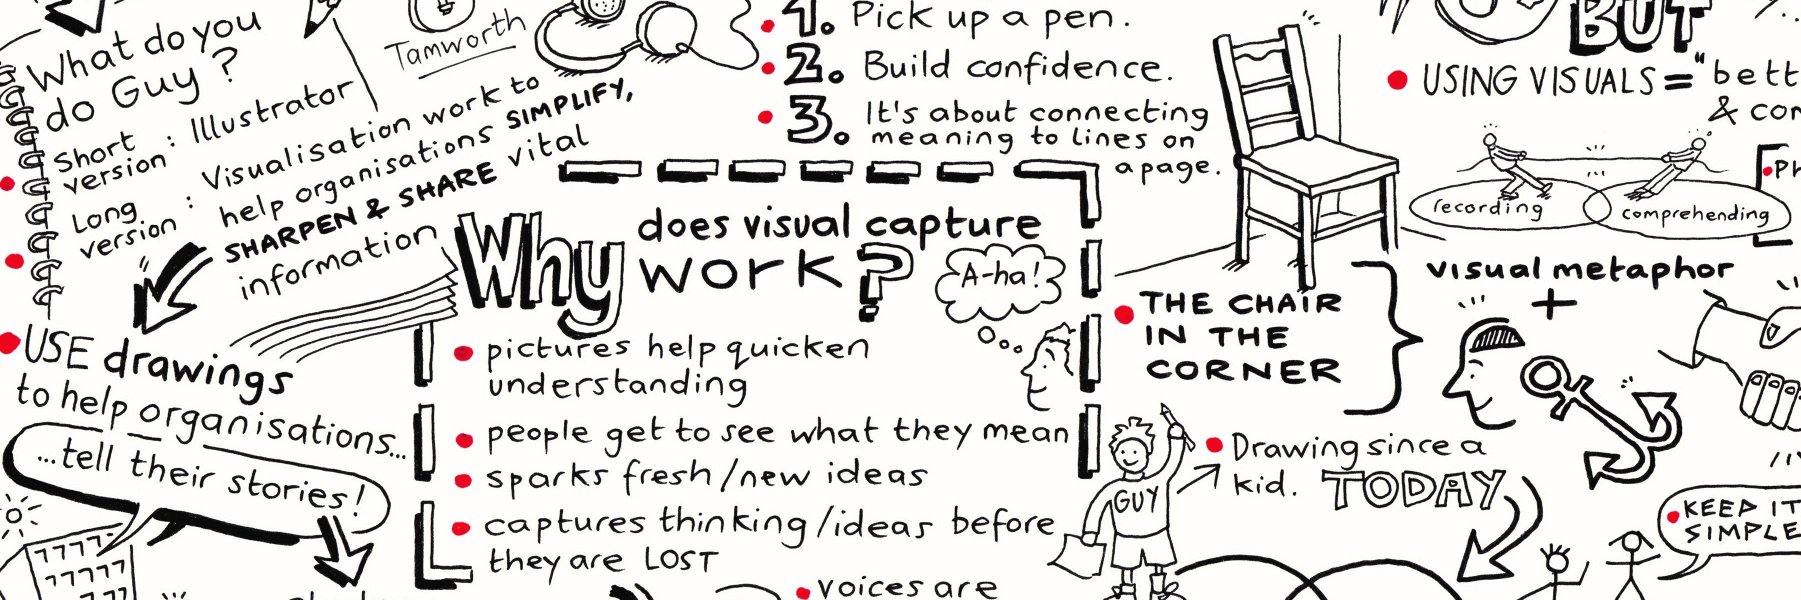 What do you
do Guy?
Short
version : Illustrator
Long
version : Visualisation work to
help organisations SIMPLIFY,
SHARPEN & SHARE vital
information
Tamworth
1. Pick up a pen.
2. Build confidence.
3. It's about connecting
meaning to lines on
a page.
BUT
USING VISUALS = "bett
& con
recording
comprehending
visual metaphor
+
THE CHAIR
IN THE
CORNER
Why does visual capture
work?
A-ha!
pictures help quicken
understanding
people get to see what they mean
sparks fresh/new ideas
captures thinking/ideas before
they are LOST
voices are
USE drawings
to help organisations...
...tell their stories!
GUY
Drawing since a
kid. TODAY
KEEP IT
SIMPLE